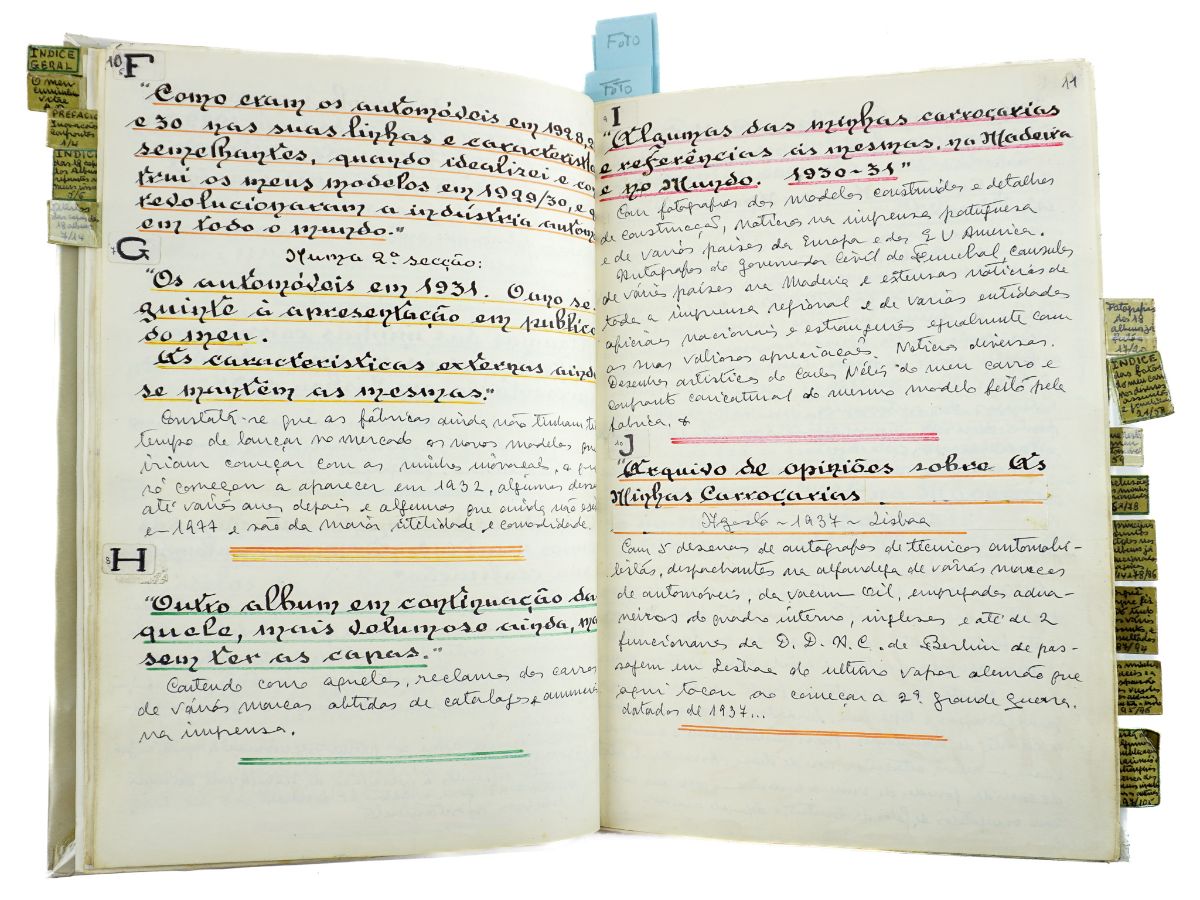 INDICE
GERAL
O meu
PREFACIO
INDICE
7/14
FOTO
FOTO
10
F
"Como eram os automóveis em 1928, 2
e 30 nas suas linhas e caracteristic
semelhantes, quando idealizei e con
trui os meus modelos em 1929/30, e q
revolucionaram a indústria autom
em todo o mundo."
G
Numa 2ª secção:
"Os automóveis em 1931. O ano se
guinte à apresentação em público
do meu.
As caracteristicas externas aind
se mantêm as mesmas."
Constatá-se que as fábricas ainda não tinham ti
tempo de lançar no mercado os novos modelos que
iriam começar com as minhas inovações, e que
só começam a aparecer em 1932, algumas dessas
até vários anos depois e algumas que ainda não
em 1977 e são da maior utilidade e comodidade.
8
H
"Outro album em continuação da
quele, mais volumoso ainda, ma
sem ter as capas."
Contendo como aqueles, reclames dos carros
de várias marcas obtidas de catalogos e anuncios
na imprensa.
11
I
"Algumas das minhas carroçarias
e referências às mesmas, na Madeira
e no Mundo. 1930-31"
Com fotografias dos modelos construidos e detalhes
de construcção, noticias na imprensa portuguesa
e de vários paises da Europa e dos E U America.
Autografos do Governador Civil do Funchal, consules
de vários paises na Madeira e extensas noticias de
toda a imprensa regional e de várias entidades
oficiais nacionais e estrangeiras igualmente com
as mas valiosas apreciações. Noticias diversas.
Desenhos artisticos do Carlos Nélis do meu carro e
confronto caricatural do mesmo modelo feito pela
fabrica.
J
"Arquivo de opiniões sobre As
Minhas Carroçarias
Agosto ~ 1937 ~ Lisboa
Com 5 dezenas de autografos de técnicos automobi-
listas, despachantes na alfandega de várias marcas
de automóveis, da vacum Oil, empregados adua-
neiros do quadro interno, ingleses e até de 2
funcionarios da D. D. A. C. de Berlim de pas-
sagem em Lisboa do ultimo vapor alemão que
aqui tocou ao começar a 2ª grande Guerra.
datados de 1937...
Fotografias
dos 18
albums
17/20
INDICE
das fotos
do meu
21/72